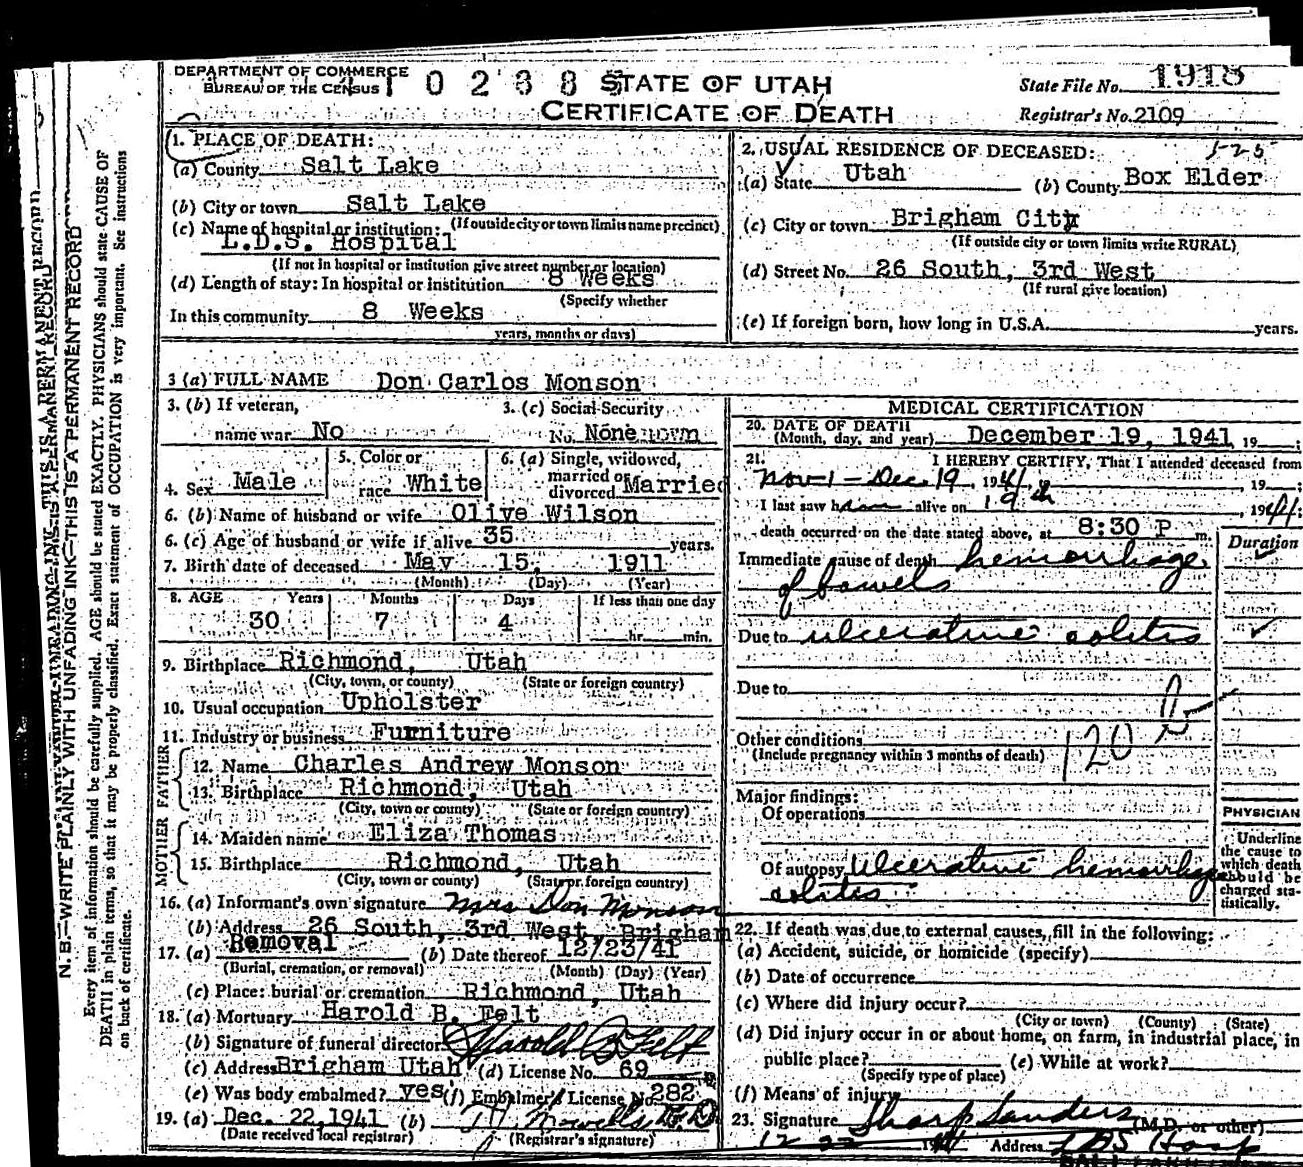 DEPARTMENT OF COMMERCE
BUREAU OF THE CENSUS
STATE OF UTAH
CERTIFICATE OF DEATH
State File No. 1918
Registrar's No. 2109
1. PLACE OF DEATH:
(a) County Salt Lake
(b) City or town Salt Lake
(If outside city or town limits name precinct)
(c) Name of hospital or institution:
L.D.S. Hospital
(If not in hospital or institution give street number or location)
(d) Length of stay: In hospital or institution 8 Weeks
(Specify whether
In this community 8 Weeks
years, months or days)
2. USUAL RESIDENCE OF DECEASED:
(a) State Utah (b) County Box Elder
(c) City or town Brigham City
(If outside city or town limits write RURAL)
(d) Street No. 26 South, 3rd West
(If rural give location)
(e) If foreign born, how long in U.S.A. years.
3 (a) FULL NAME Don Carlos Monson
3. (b) If veteran,
name war No
3. (c) Social Security
No. None
4. Sex Male
5. Color or
race White
6. (a) Single, widowed,
married or
divorced Married
6. (b) Name of husband or wife Olive Wilson
6. (c) Age of husband or wife if alive 35 years.
7. Birth date of deceased May 15, 1911
(Month) (Day) (Year)
8. AGE Years Months Days If less than one day
30 7 4 hr. min.
9. Birthplace Richmond, Utah
(City, town, or county) (State or foreign country)
10. Usual occupation Upholster
11. Industry or business Furniture
FATHER
12. Name Charles Andrew Monson
13. Birthplace Richmond, Utah
(City, town or county) (State or foreign country)
MOTHER
14. Maiden name Eliza Thomas
15. Birthplace Richmond, Utah
(City, town or county) (State or foreign country)
16. (a) Informant's own signature Mrs Don Monson
(b) Address 26 South, 3rd West, Brigham
17. (a) Removal (b) Date thereof 12/23/41
(Burial, cremation, or removal) (Month) (Day) (Year)
(c) Place: burial or cremation Richmond, Utah
18. (a) Mortuary Harold B. Felt
(b) Signature of funeral director Harold B Felt
(c) Address Brigham Utah (d) License No. 69
(e) Was body embalmed? yes (f) Embalmer's License No. 282
19. (a) Dec. 22, 1941 (b)
(Date received local registrar) (Registrar's signature)
MEDICAL CERTIFICATION
20. DATE OF DEATH
(Month, day, and year) December 19, 1941, 19 ;
21. I HEREBY CERTIFY, That I attended deceased from
Nov 1 - Dec 19, 1941, 19 ;
I last saw him alive on 19th, 1941;
death occurred on the date stated above, at 8:30 P m.
Duration
Immediate cause of death hemorrhage
of bowels
Due to ulcerative colitis
Due to
Other conditions
(Include pregnancy within 3 months of death)
120
Major findings:
Of operations
Of autopsy Ulcerative hemorrhage
colitis
PHYSICIAN
Underline
the cause to
which death
should be
charged sta-
tistically.
22. If death was due to external causes, fill in the following:
(a) Accident, suicide, or homicide (specify)
(b) Date of occurrence
(c) Where did injury occur?
(City or town) (County) (State)
(d) Did injury occur in or about home, on farm, in industrial place, in
public place? (e) While at work?
(Specify type of place)
(f) Means of injury
23. Signature Sharp Sanders (M.D. or other)
12 22 1941 Address LDS Hosp
N. B.—WRITE PLAINLY WITH UNFADING INK—THIS IS A PERMANENT RECORD
Every item of information should be carefully supplied. AGE should be stated EXACTLY. PHYSICIANS should state CAUSE OF
DEATH in plain terms, so that it may be properly classified. Exact statement of OCCUPATION is very important. See instructions
on back of certificate.